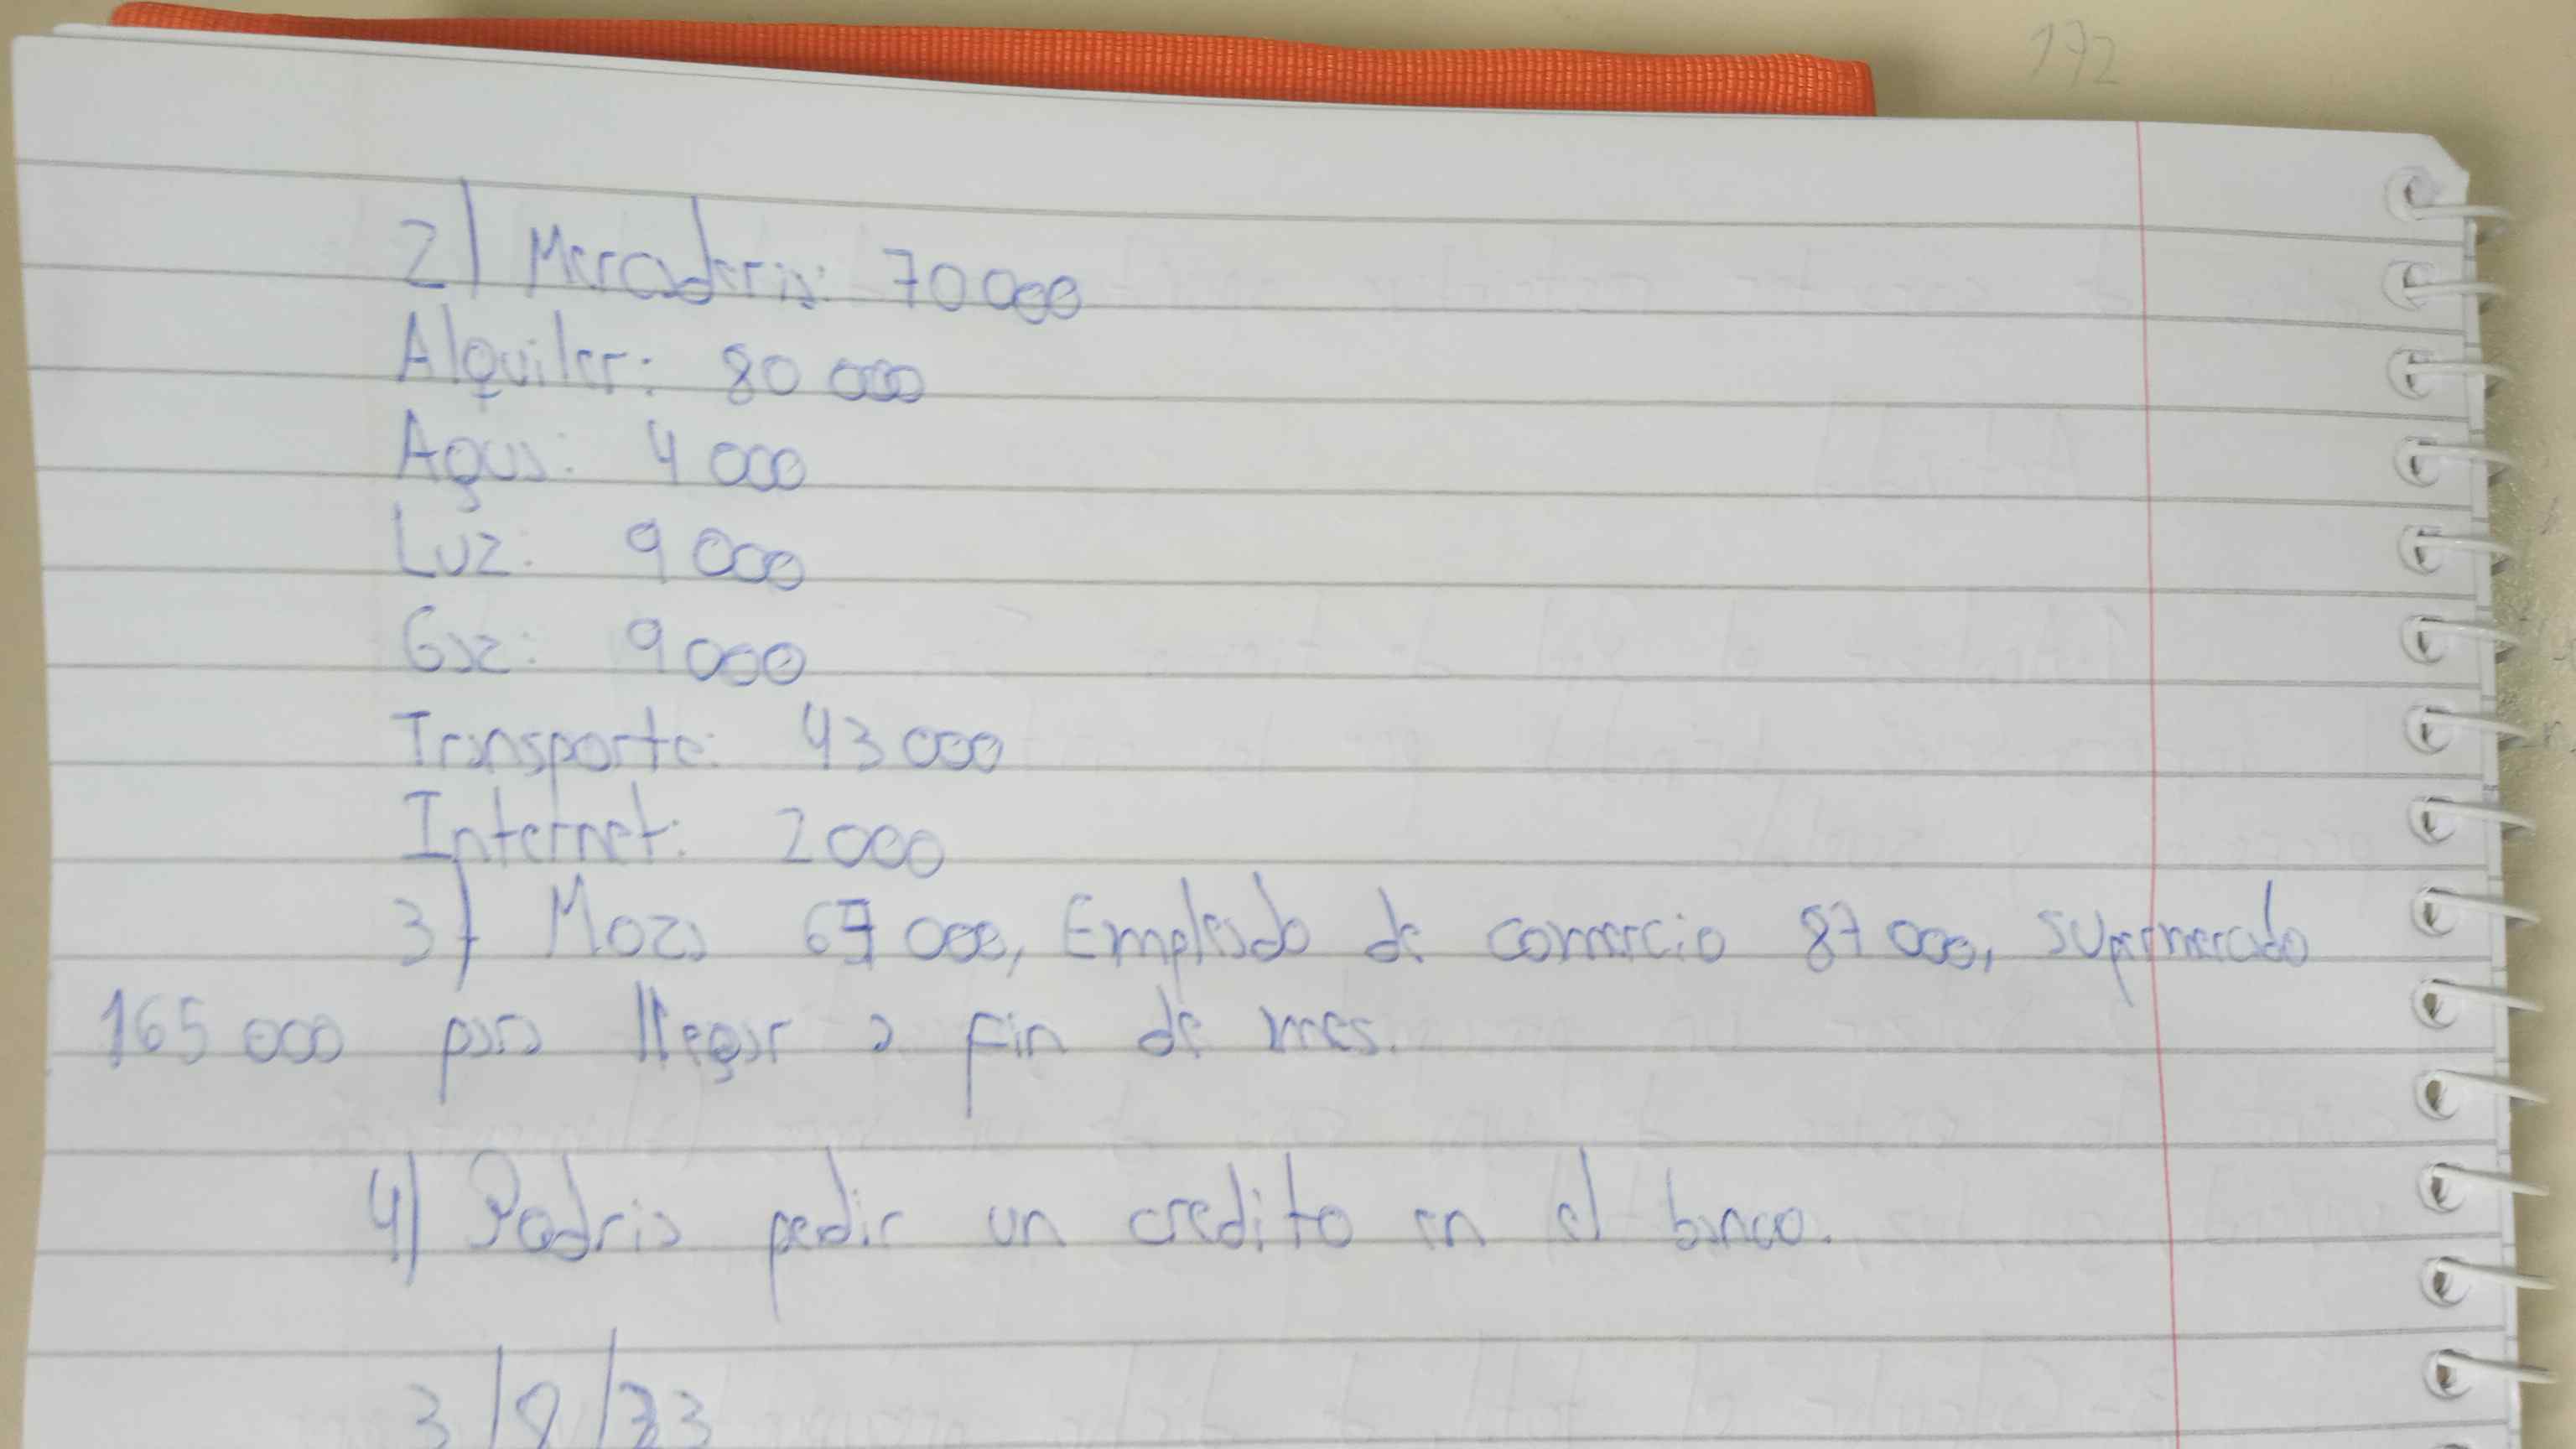 192
2) Mercaderia: 70 000
Alquiler: 80 000
Agua: 4 000
Luz: 9 000
Gaz: 9 000
Transporte: 43 000
Internet: 2 000
3) Moza 000, Empleado de comercio 87 000, supermercado
165 000 para llegar a fin de mes.
4) Podria pedir un credito en el banco.